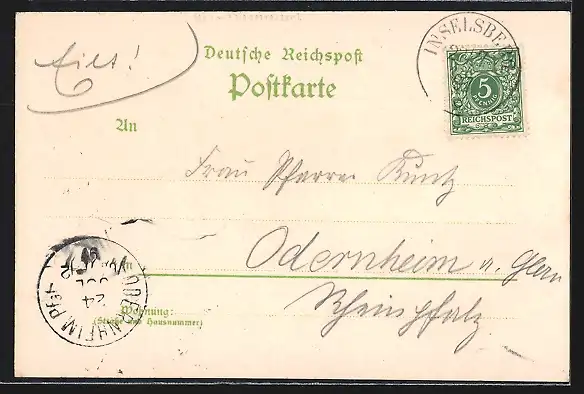 Eilt!
Deutsche Reichspost
Postkarte
INSELSBE
5
PFENNIG
REICHSPOST
An
Frau Pfarrer Kuntz
in
Odernheim a. Glan
Rheinpfalz
Wohnung:
(Straße und Hausnummer)
ODERNHEIM Pfal
24
JUL